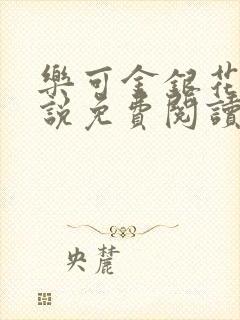 樂可金銀花
說免費閱讀
央麓